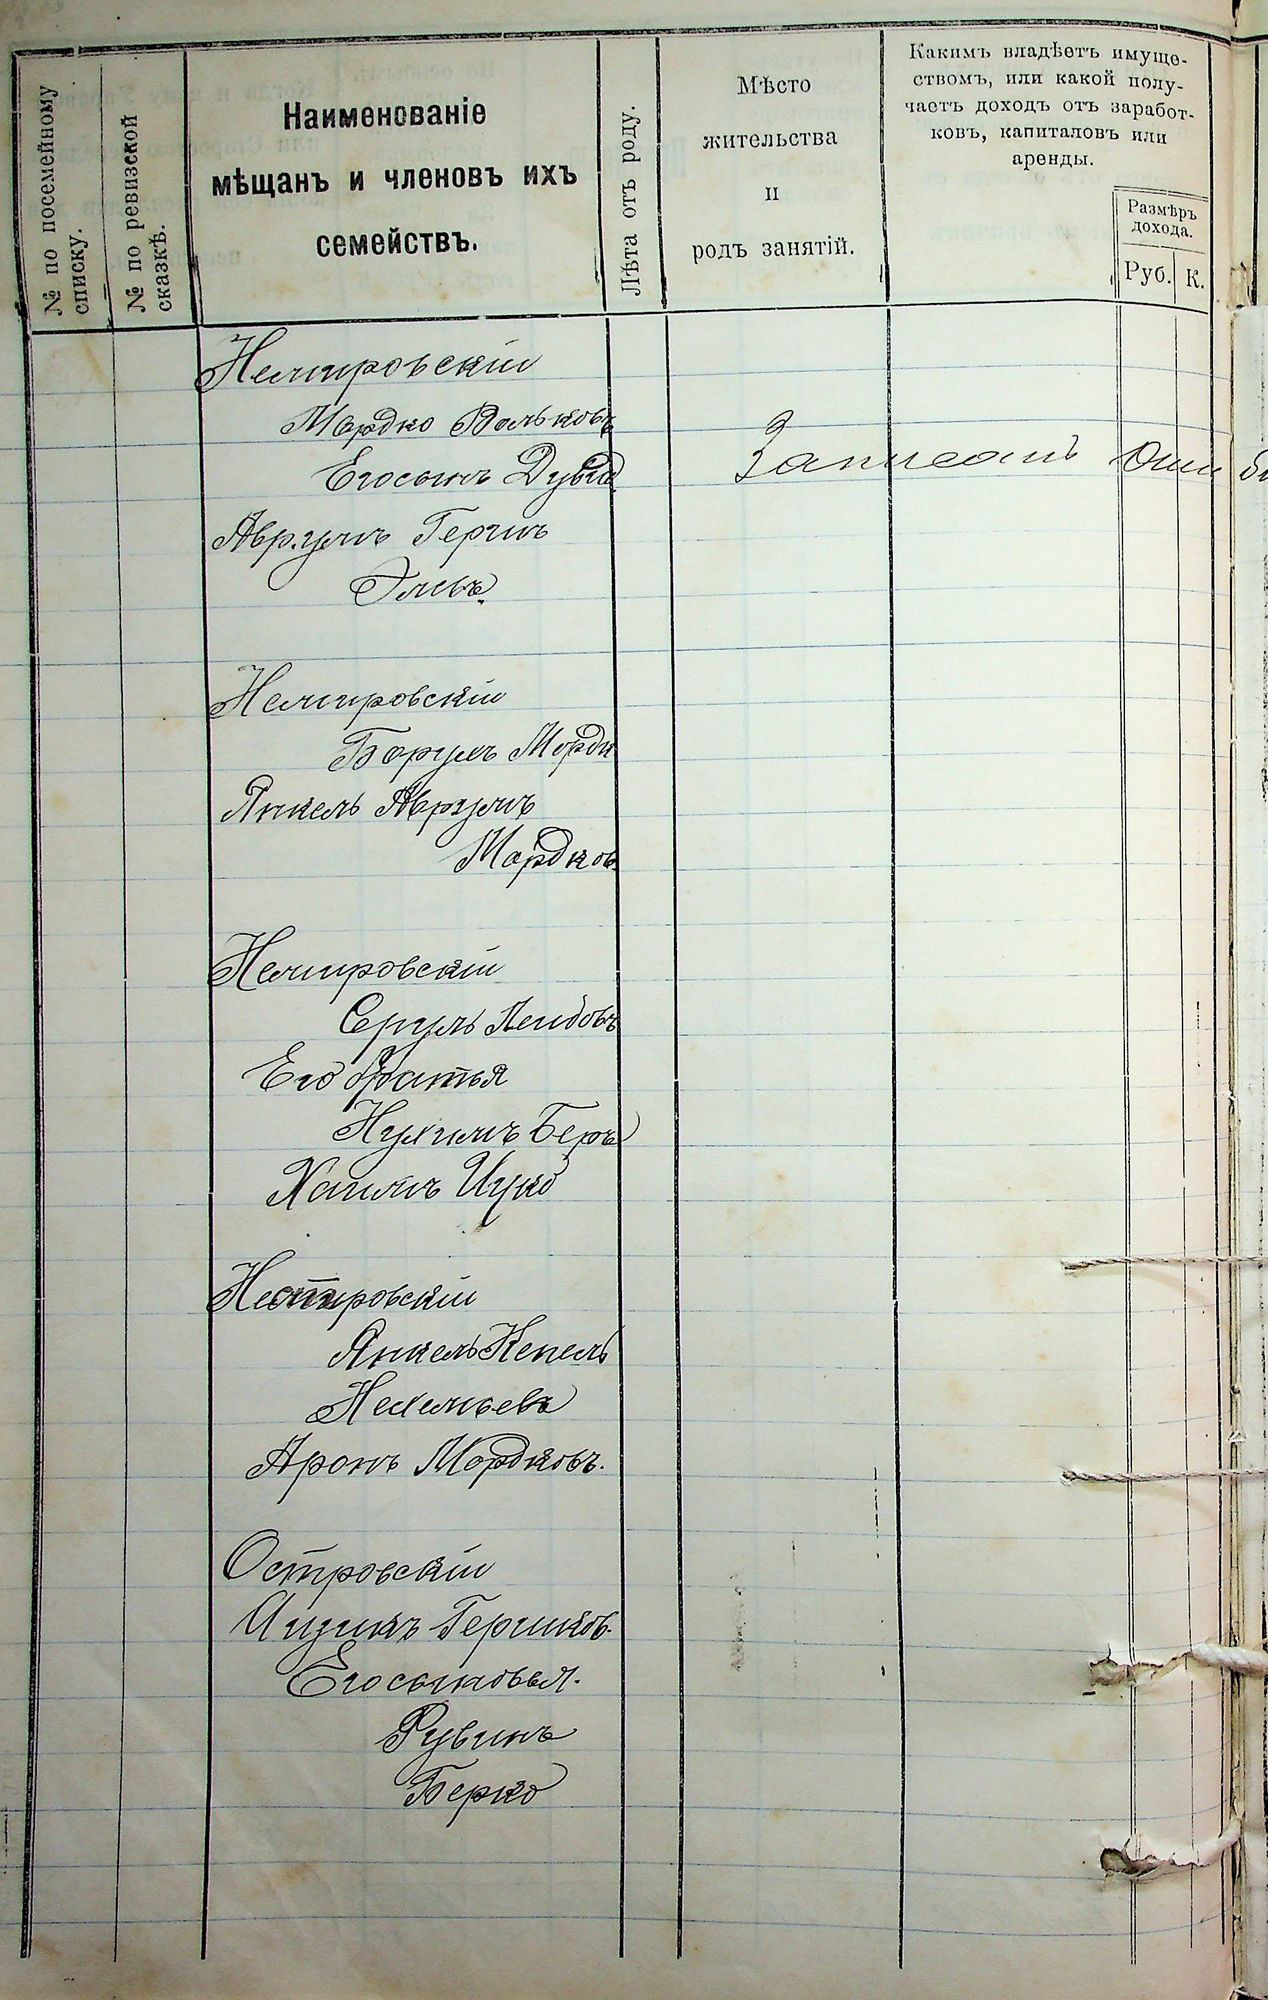 № по посемейному
списку.
№ по ревизской
сказкѣ.
Наименованіе
мѣщанъ и членовъ ихъ
семействъ.
Лѣта отъ роду.
Мѣсто
жительства
и
родъ занятій.
Какимъ владѣетъ имуще-
ствомъ, или какой полу-
чаетъ доходъ отъ заработ-
ковъ, капиталовъ или
аренды.
Размѣръ
дохода.
Руб. К.
Немировскій
Мордко Вольковъ
Его сынъ Дувид
Записанъ Оши
Аврумъ Герш
Элевъ.
Немировскій
Борухъ Мордк
Янкель Аврумъ
Мордков.
Немировскій
Сруль Лейбовъ
Его братья
Нухимъ Беръ
Хаимъ Ицко
Немировскій
Янкель Кепель
Аронъ Мордковъ.
Островскій
Айзикъ Гершков.
Его сыновья.
Рувинъ
Берко